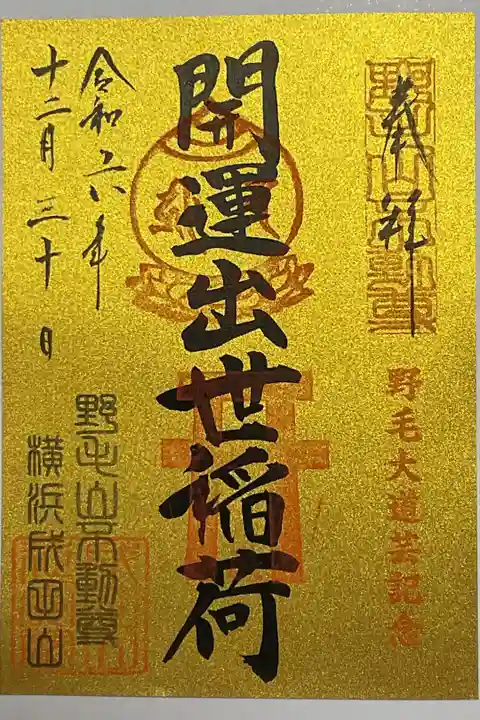 奉拝
野毛山不動尊
野毛大道芸記念
開運出世稲荷
令和六年
十二月三十日
野毛山不動尊
横浜成田山